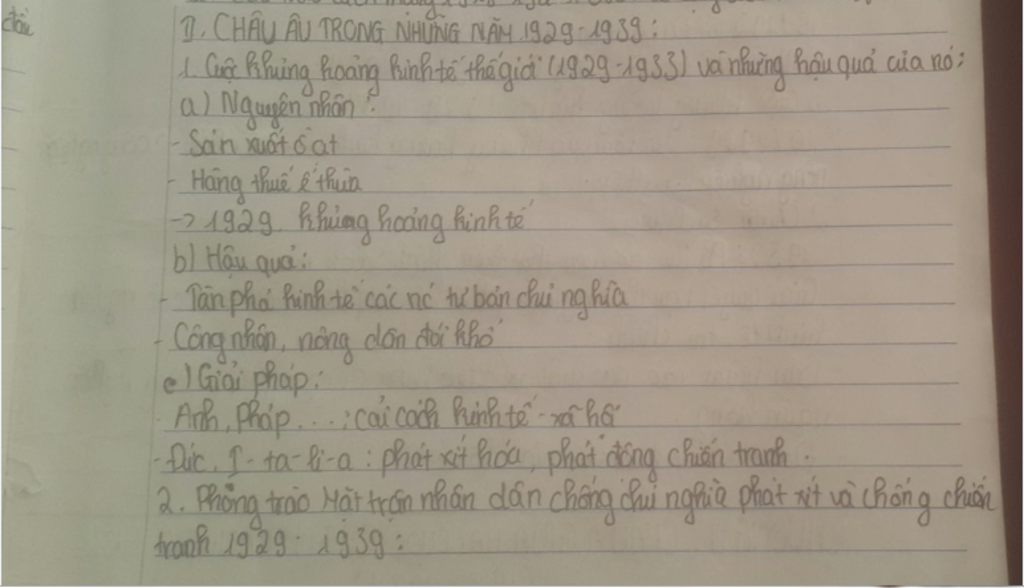 II. CHÂU ÂU TRONG NHỮNG NĂM 1929-1939:
1. Cuộc khủng hoảng kinh tế thế giới (1929-1933) và những hậu quả của nó:
a) Nguyên nhân:
- Sản xuất ồ ạt
- Hàng thuế ế thừa
-> 1929. khủng hoảng kinh tế
b) Hậu quả:
- Tàn phá kinh tế các nc tư bản chủ nghĩa
- Công nhân, nông dân đói khổ
c) Giải pháp:
- Anh, Pháp...: cải cách kinh tế - xã hội
- Đức, I-ta-li-a: phát xít hóa, phát động chiến tranh.
2. Phong trào Mặt trận nhân dân chống chủ nghĩa phát xít và chống chiến
tranh 1929-1939: